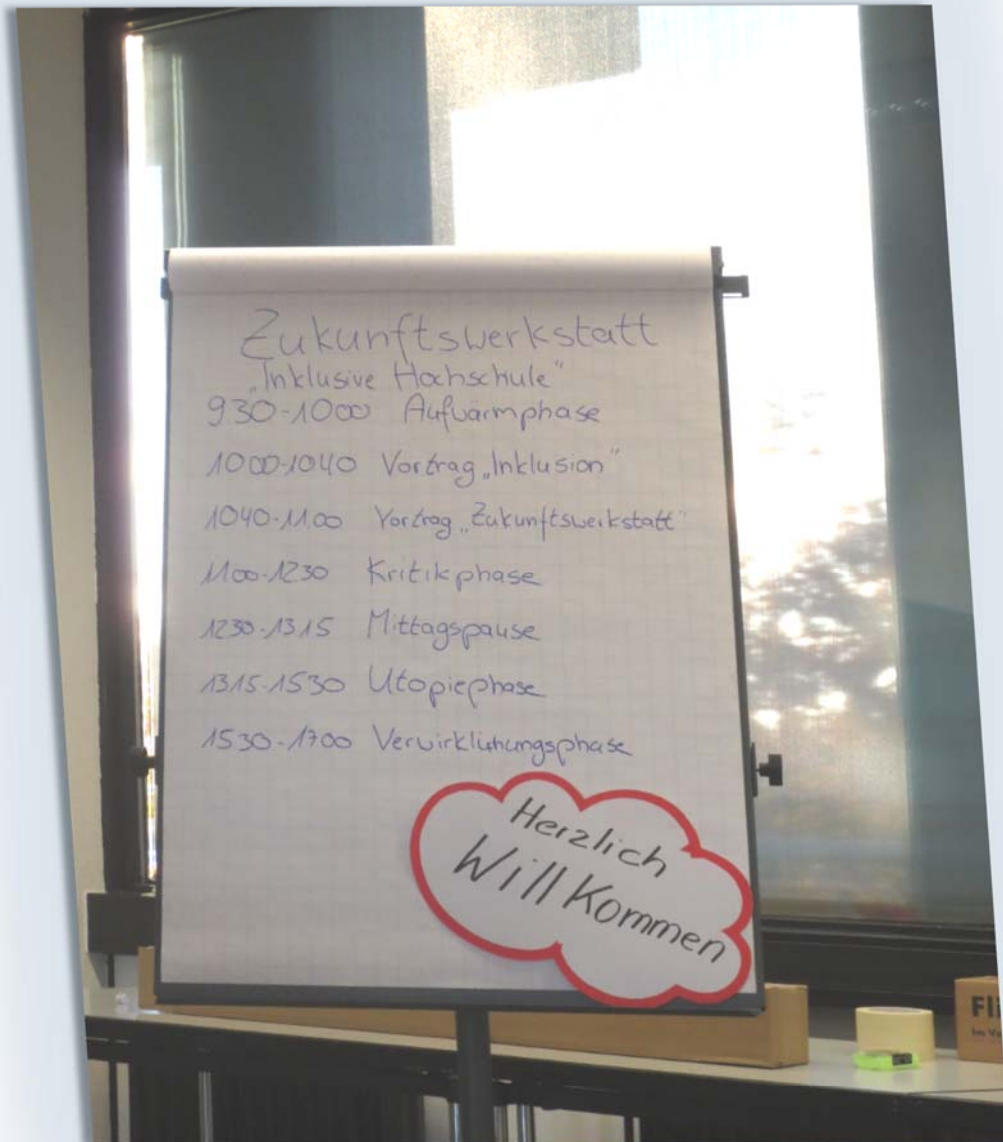 Zukunftswerkstatt
„Inklusive Hochschule"
930-1000 Aufwärmphase
1000-1040 Vortrag „Inklusion"
1040-1100 Vortrag „Zukunftswerkstatt"
1100-1230 Kritikphase
1230-1315 Mittagspause
1315-1530 Utopiephase
1530-1700 Verwirklichungsphase
Herzlich
Willkommen